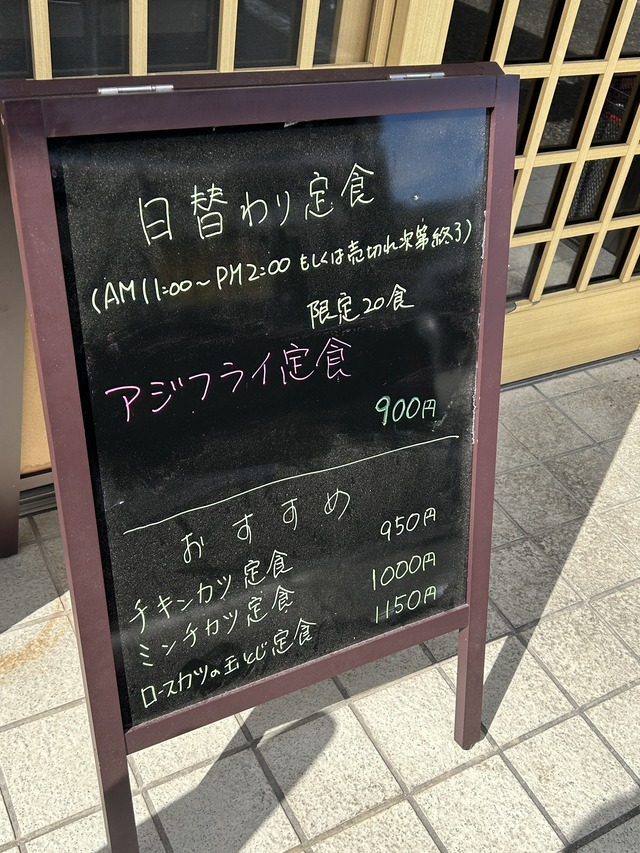 日替わり定食
(AM11:00～PM2:00 もしくは売切れ次第終了)
限定20食
アジフライ定食
900円
おすすめ
チキンカツ定食 950円
ミンチカツ定食 1000円
ロースカツの玉とじ定食 1150円